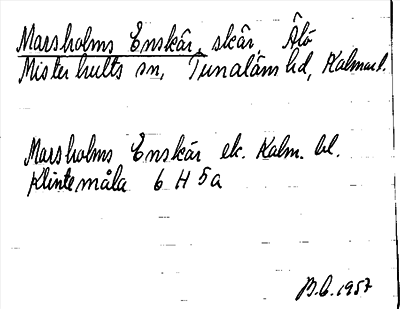 Marsholms Enskär, skär, Älö
Misterhults sn, Tunaläns hd, Kalmar l.
Marsholms Enskär ek. Kalm. bl.
Klintemåla 6 H 5a
B.C. 1957